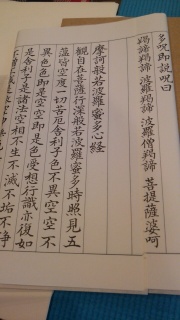 多呪即説呪曰
羯諦羯諦 波羅羯諦 波羅僧羯諦 菩提薩婆呵
摩訶般若波羅蜜多心經
觀自在菩薩行深般若波羅蜜多時照見五
蘊皆空度一切苦厄舍利子色不異空空不
異色色即是空空即是色受想行識亦復如
是舍利子是諸法空相不生不滅不垢不淨